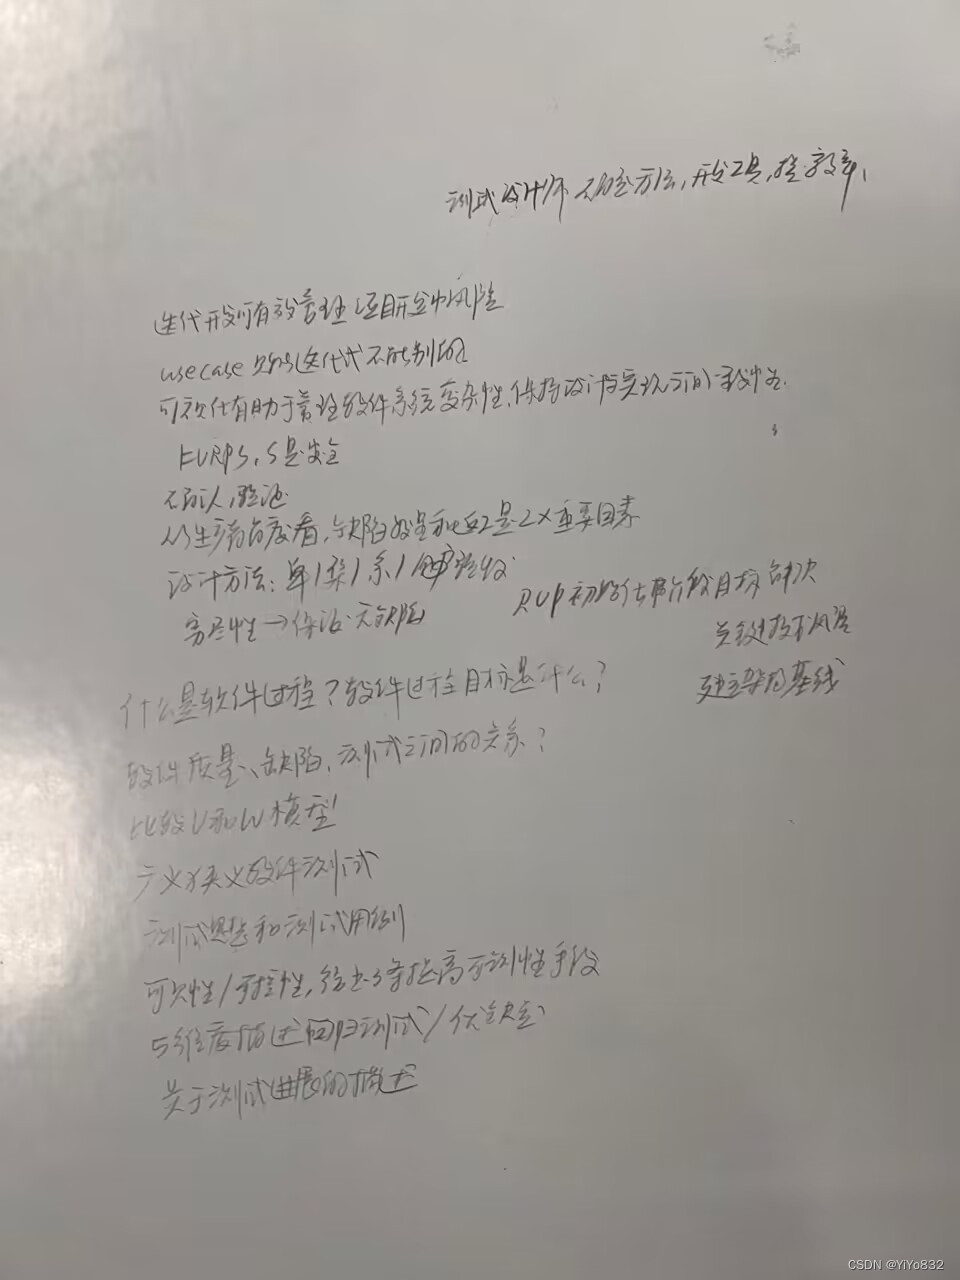 测试设计师 确定方法,开发工具,提 效率,
迭代开发可有效管理 项目开发中风险
usecase 只是迭代式不能别的
可视化有助于管理软件系统复杂性,保持设计与实现之间一致性
FURPS, S是安全
确认,验证
从生产角度看,缺陷数量和返工是2个重要因素
设计方法:单/集/系/验收
完整性→保证无缺陷
RUP初始化阶段目标
关键技术风险
建立架构基线
什么是软件过程?软件过程目标是什么?
软件质量、缺陷、测试之间的关系?
比较V和W模型
广义狭义软件测试
测试思想和测试用例
可见性/可控性,给出3条提高可测性手段
5维度描述回归测试/优缺点
关于测试进展的描述
CSDN @YiYo832